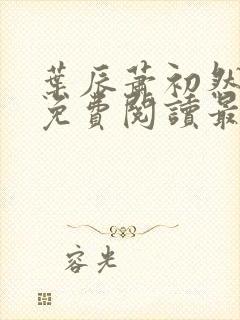 葉辰蕭初然
免費閱讀最
容光